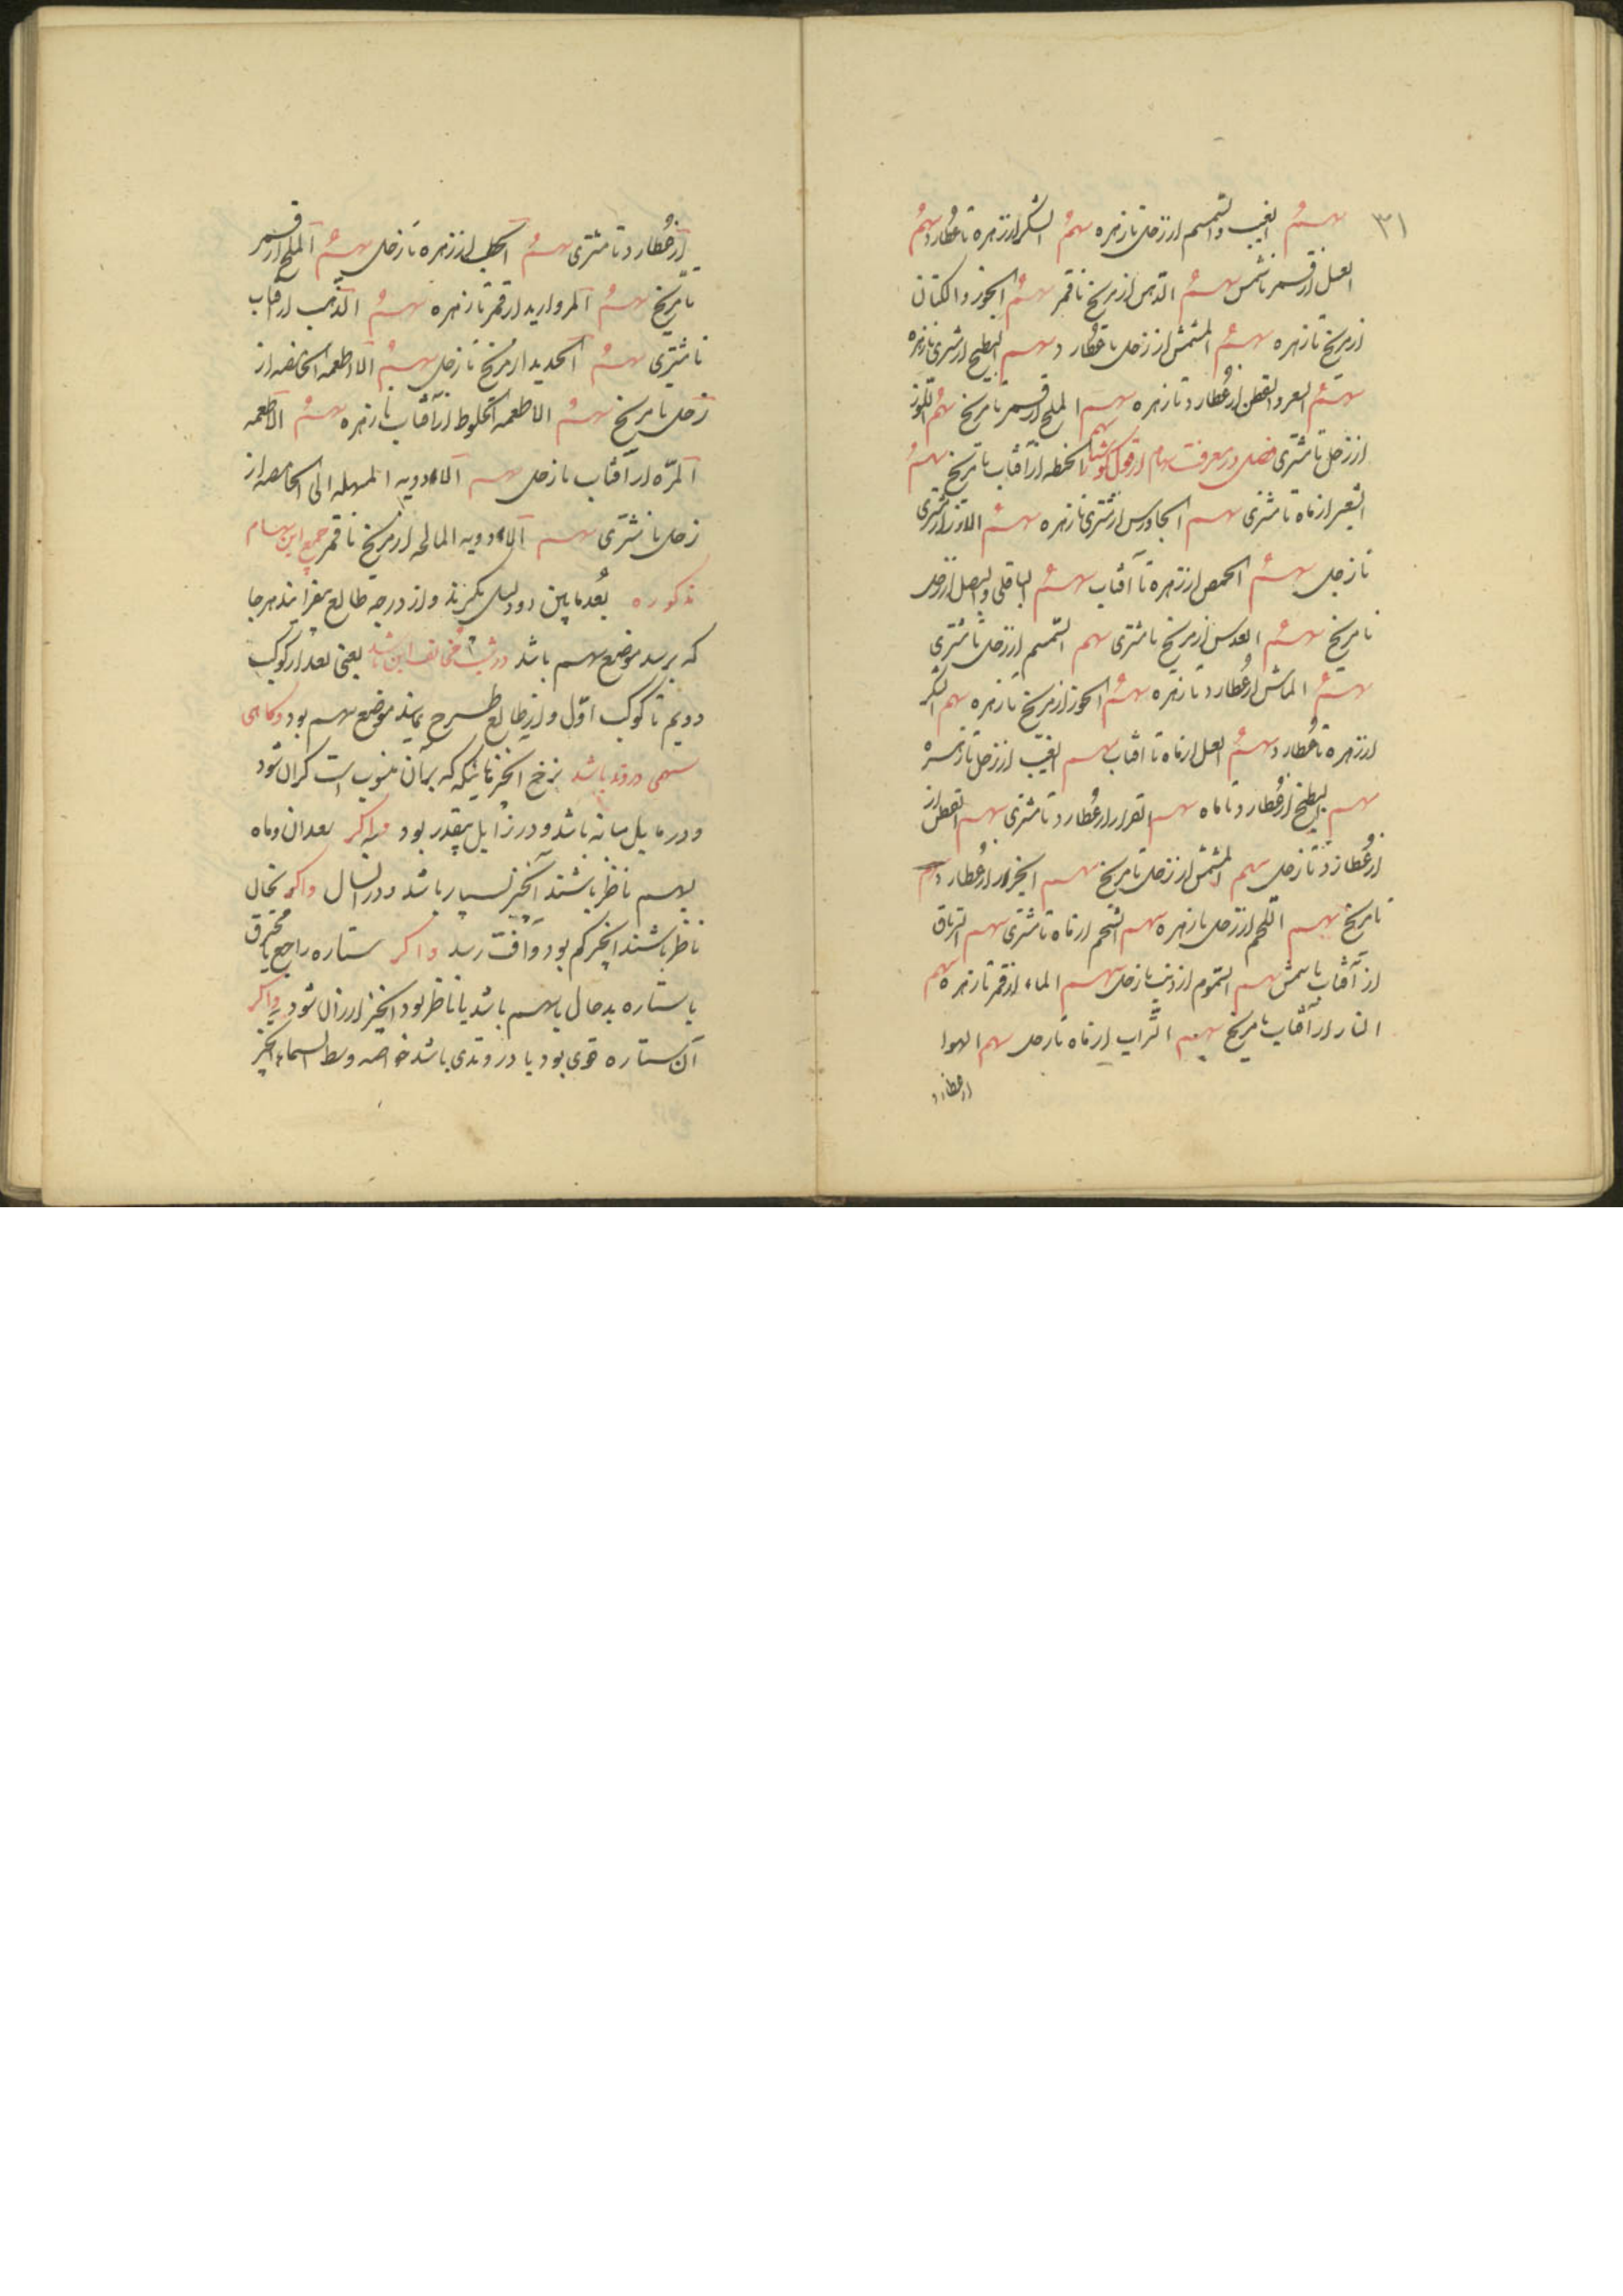 ۳۱
سهم العنب والسمسم از زحل تا زهره سهم السکر از زهره تا عطارد سهم
العسل از قمر تا شمس سهم الدهن از مریخ تا قمر سهم الجوز والکتان
از مریخ تا زهره سهم المشمش از زحل تا عطارد سهم البطیخ از مشتری تا زهره
سهم القطن از عطارد تا زهره سهم الملح از قمر تا مریخ سهم اللوز
از زحل تا مشتری فصل در معرفت سهام از قول کوشیار سهم الحنطه از آفتاب تا مریخ سهم
الشعیر از ماه تا مشتری سهم الجاورس از مشتری تا زهره سهم الارز از مشتری
تا زحل سهم الحمص از زهره تا آفتاب سهم الباقلی والبصل از زحل
تا مریخ سهم العدس از مریخ تا مشتری سهم السمسم از زحل تا مشتری
سهم الماش از عطارد تا زهره سهم الجوز از مریخ تا زهره سهم السکر
از زهره تا عطارد سهم العسل از ماه تا آفتاب سهم العنب از زحل تا زهره
سهم البطیخ از عطارد تا ماه سهم از عطارد تا مشتری سهم القطن از
از عطارد تا زحل سهم المشمش از زحل تا مریخ سهم از عطارد
تا مریخ سهم اللحم از زحل تا زهره سهم الشحم از ماه تا مشتری سهم التریاق
از آفتاب تا شمس سهم السموم از ذنب تا زحل سهم الماء از قمر تا زهره سهم
النار از آفتاب تا مریخ سهم التراب از ماه تا زحل سهم الهوا
از عطارد
از عطارد تا مشتری سهم از زهره تا زحل سهم الملح از قمر
تا مریخ سهم المروارید از قمر تا زهره سهم الذهب از آفتاب
تا مشتری سهم الحدید از مریخ تا زحل سهم الاطعمه الحامضه از
زحل تا مریخ سهم الاطعمه الحلو از آفتاب تا زهره سهم الاطعمه
المرّه از آفتاب تا زحل سهم الادویه المسهله الحامضه از
زحل تا مشتری سهم الادویه المالحه از مریخ تا قمر جمیع این سهام
مذکوره بُعد مابین دو دلیل بگیرند و از درجه طالع بیفزایند هر جا
که برسد موضع سهم باشد و در شب مخالف این باشد یعنی بعد از کوکب
دویم تا کوکب اوّل و از طالع طرح نمایند موضع سهم بود و گاهی
سهمی در وتد باشد نرخ آنچیز که بر آن منسوب است گران شود
و در مایل میانه باشد و در زایل بیقدر بود و اگر سعدان و ماه
بسهم ناظر باشند آنچیز بسیار باشد در آنسال و اگر نحسان
ناظر باشند آنچیز کم بود و آفت رسد و اگر ستاره راجع یا محترق
یا ستاره بدحال با سهم باشد یا ناظر بود آنچیز ارزان شود و اگر
آن ستاره قوی بود یا در وتدی باشد خواصه وسط السماء آنچیز